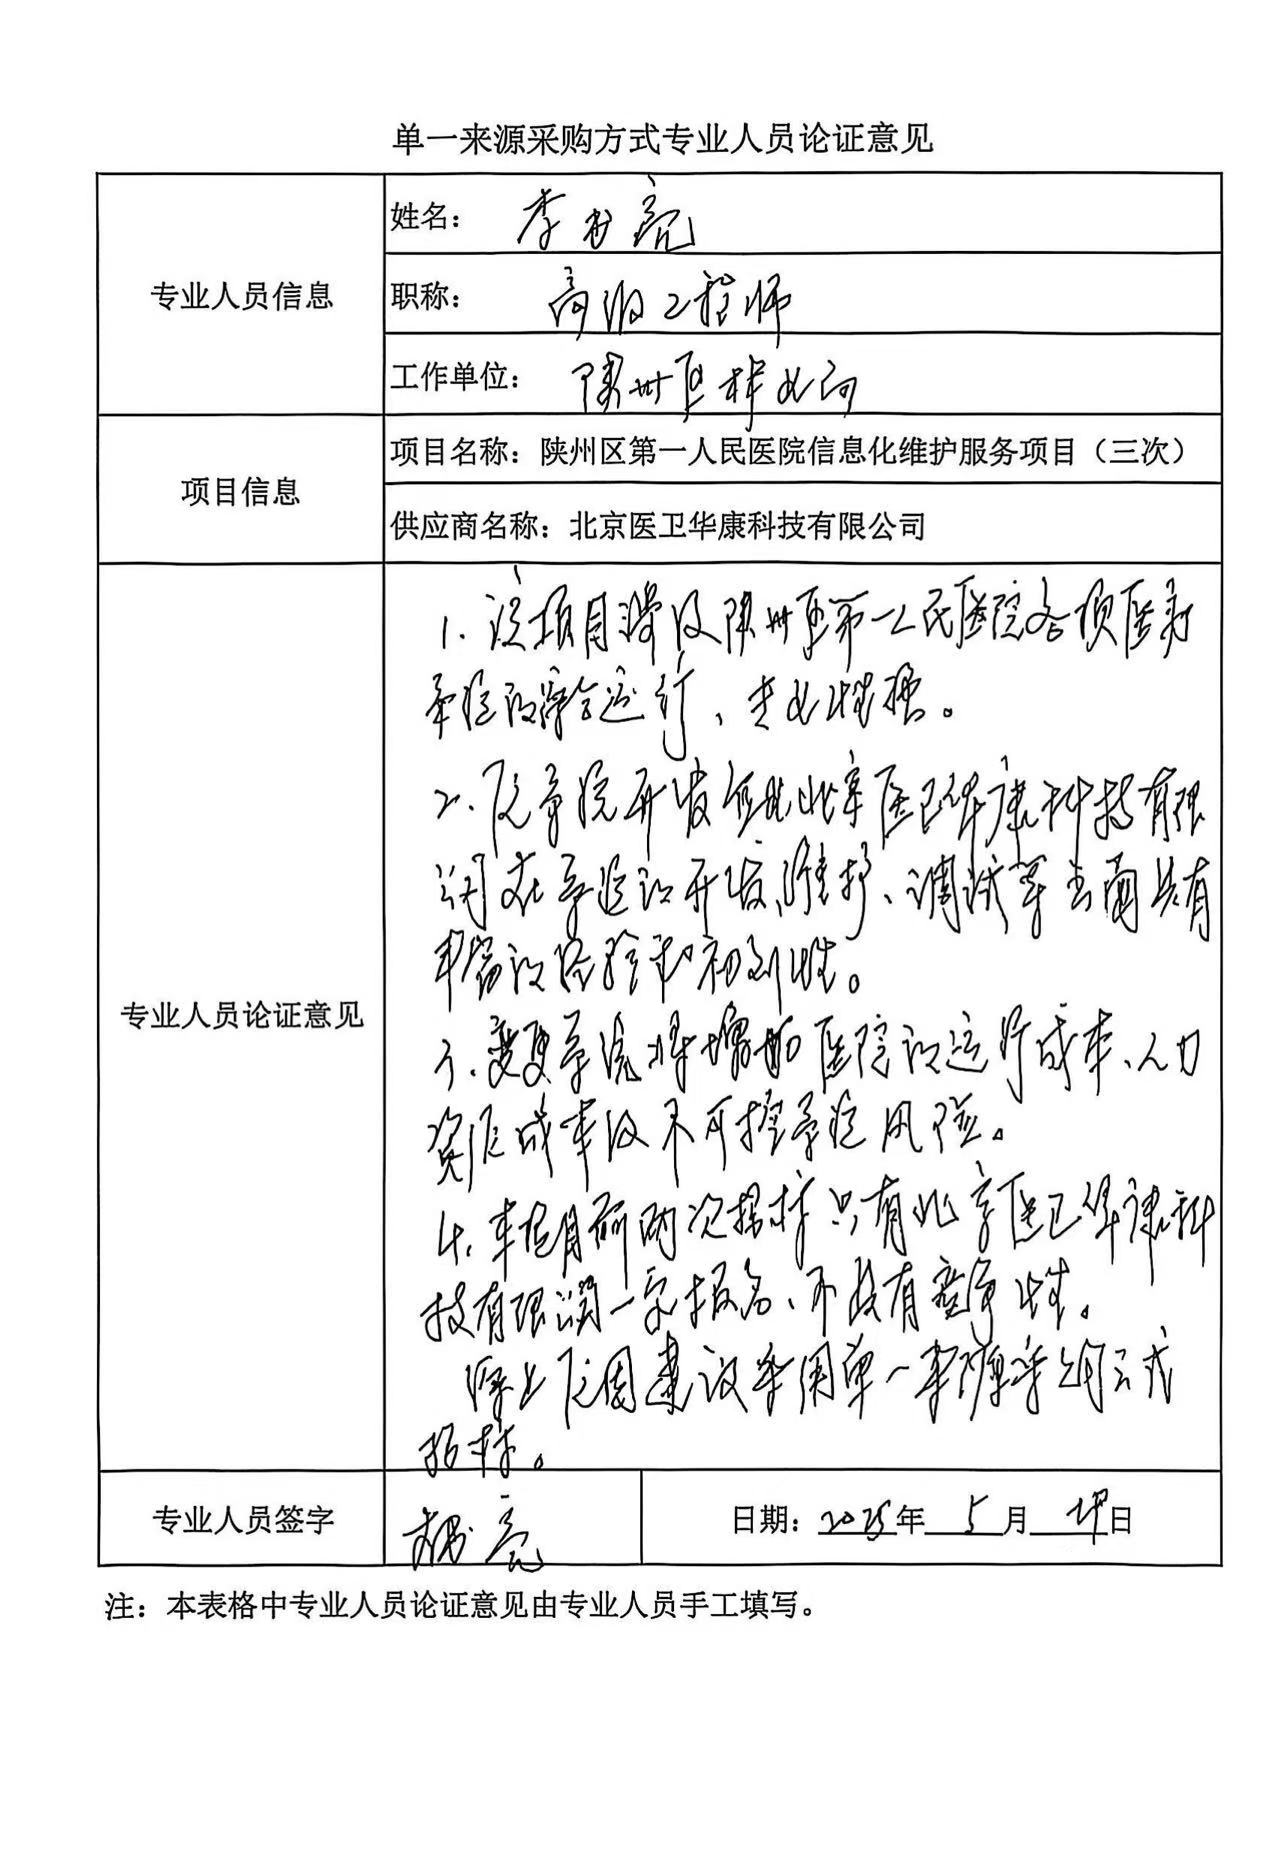 单一来源采购方式专业人员论证意见
专业人员信息
姓名：李书亮
职称：高级工程师
工作单位：陕州区林业局
项目信息
项目名称：陕州区第一人民医院信息化维护服务项目（三次）
供应商名称：北京医卫华康科技有限公司
专业人员论证意见
1、该项目涉及陕州区第一人民医院各项医疗
系统的综合运行、专业性强。
2、原系统开发 北京医卫华康科技有限
公司在系统的开发、维护、调试等方面具有
丰富的经验和 性。
3、变更系统将增加医院的运行成本、人力
资源成本及不可控系统风险。
4、本项目前两次招标只有北京医卫华康科
技有限公司一家报名、不具有竞争性。
综上原因建议采用单一来源采购方式
招标。
专业人员签字
李书亮
日期：2025年5月 日
注：本表格中专业人员论证意见由专业人员手工填写。